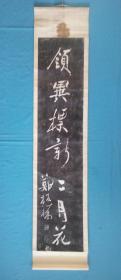 領異標新二月花
鄭板橋